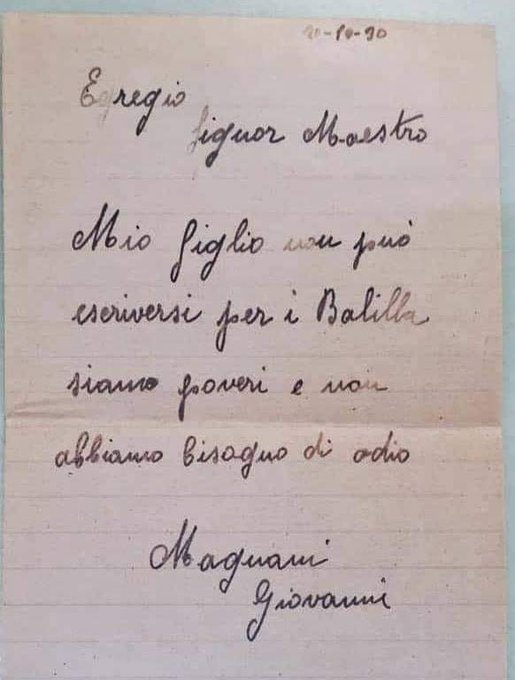 20-10-30
Egregio
Signor Maestro
Mio figlio non può
escriversi per i Balilla
siamo poveri e non
abbiamo bisogno di odio
Magnani
Giovanni